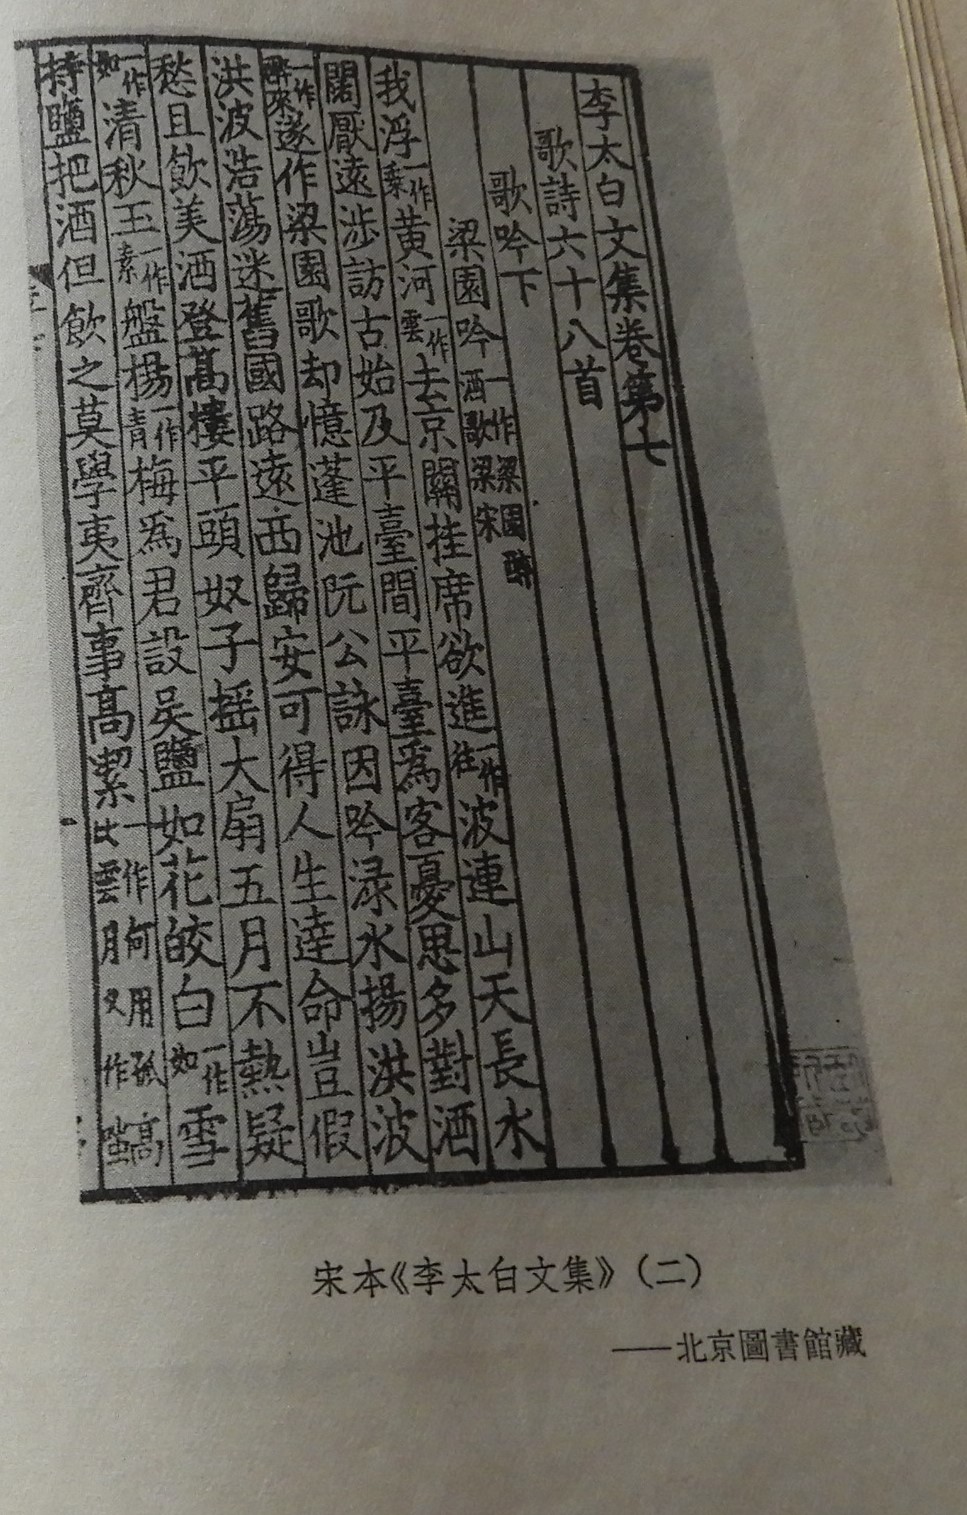 李太白文集卷第七
歌詩六十八首
歌吟下
梁園吟一作梁園醉酒歌梁宋
我浮一作乘黄河一作雲去京關挂席欲進一作往波連山天長水
闊厭遠涉訪古始及平臺間平臺爲客憂思多對酒
一作醉來遂作梁園歌却憶蓬池阮公詠因吟渌水揚洪波
洪波浩蕩迷舊國路遠西歸安可得人生達命豈假
愁且飲美酒登髙樓平頭奴子摇大扇五月不熱疑
一作如清秋玉一作素盤楊一作青梅爲君設吳鹽如花皎白一作如雪
持鹽把酒但飲之莫學夷齊事髙潔一作何用孤高比雲月又作
宋本《李太白文集》（二）
——北京圖書館藏